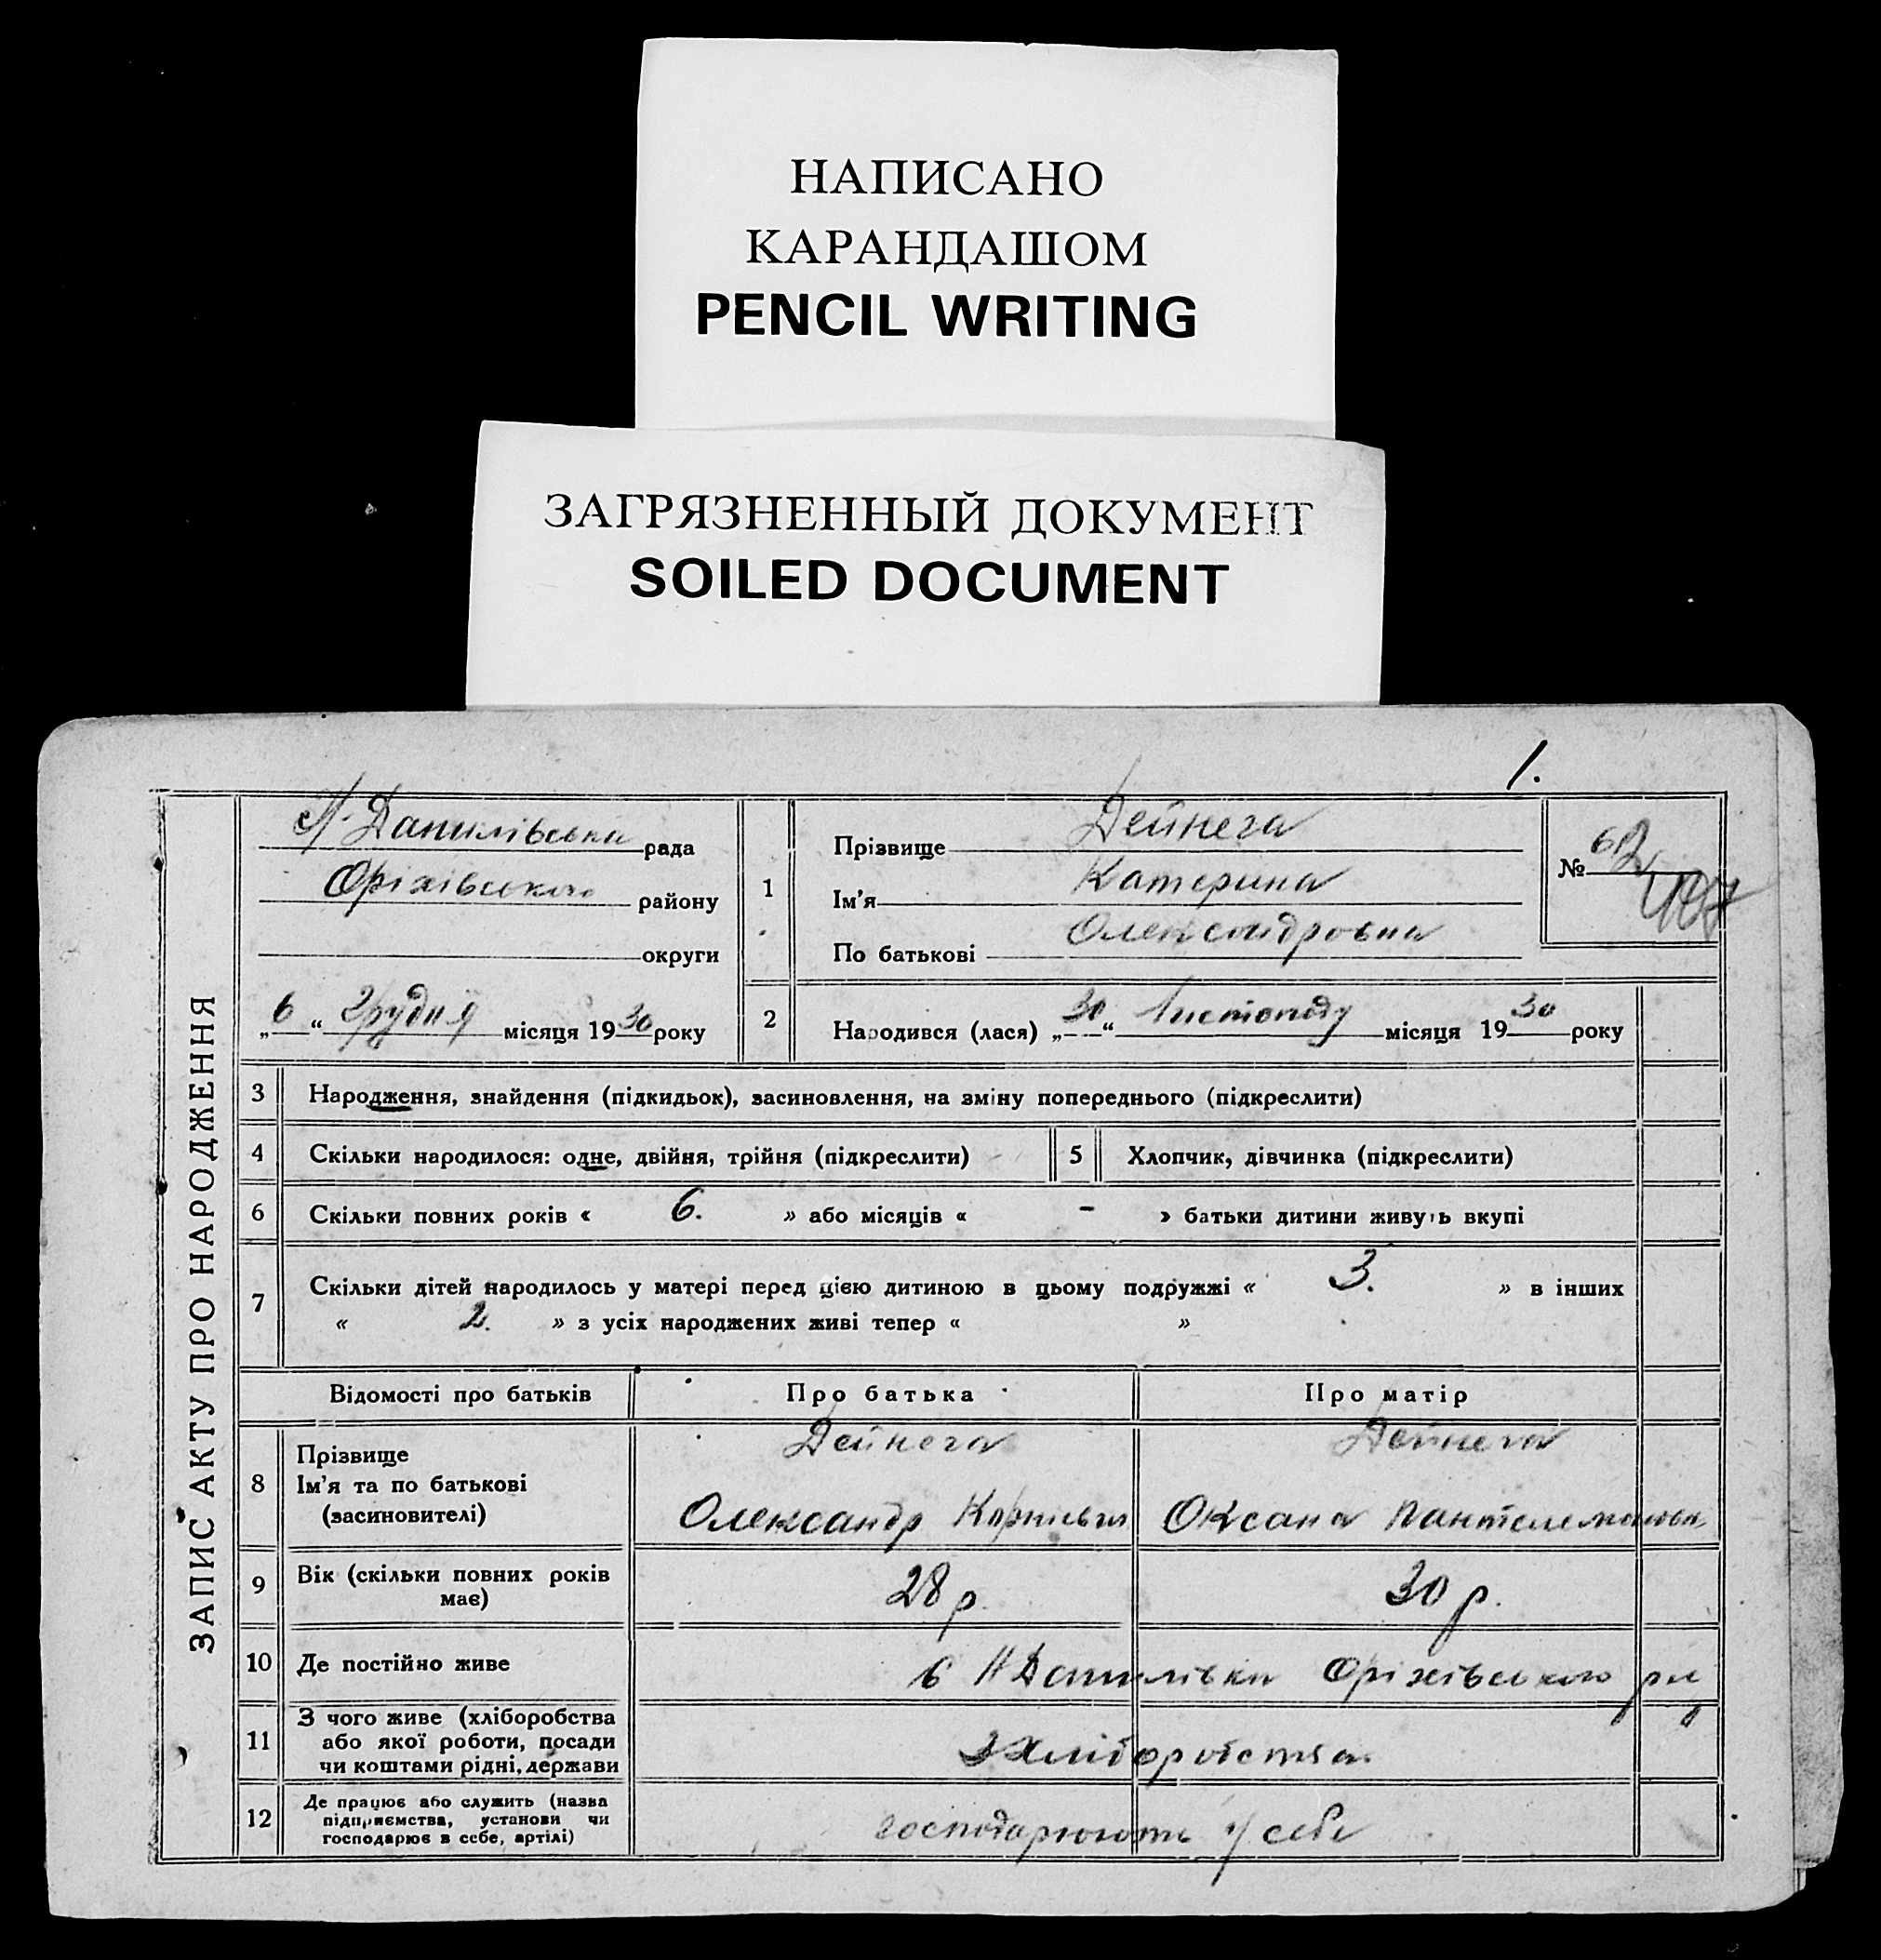 НАПИСАНО
КАРАНДАШОМ
PENCIL WRITING
ЗАГРЯЗНЕННЫЙ ДОКУМЕНТ
SOILED DOCUMENT
1.
ЗАПИС АКТУ ПРО НАРОДЖЕННЯ
Н. Данилівська рада
Оріхівського району
округи
„6“ Грудня місяця 1930 року
1
Прізвище Дейнега
Ім'я Катерина
По батькові Олександровна
№ 62
2 Народився (лася) „30“ Листопаду місяця 1930 року
3 Народження, знайдення (підкидьок), засиновлення, на зміну попереднього (підкреслити)
4 Скільки народилося: одне, двійня, трійня (підкреслити) 5 Хлопчик, дівчинка (підкреслити)
6 Скільки повних років « 6. » або місяців « - » батьки дитини живуть вкупі
7 Скільки дітей народилось у матері перед цією дитиною в цьому подружжі « 3. » в інших
« 2. » з усіх народжених живі тепер « »
Відомості про батьків Про батька Про матір
8 Прізвище Дейнега Дейнега
Ім'я та по батькові Олександр Оксана
(засиновителі)
9 Вік (скільки повних років має) 28 р. 30 р.
10 Де постійно живе в Н Данилівки Оріхівського р-ну
11 З чого живе (хліборобства
або якої роботи, посади
чи коштами рідні, держави
з хліборобства
12 Де працює або служить (назва
підприємства, установи чи
господарює в себе, артілі)
господарюють у себе